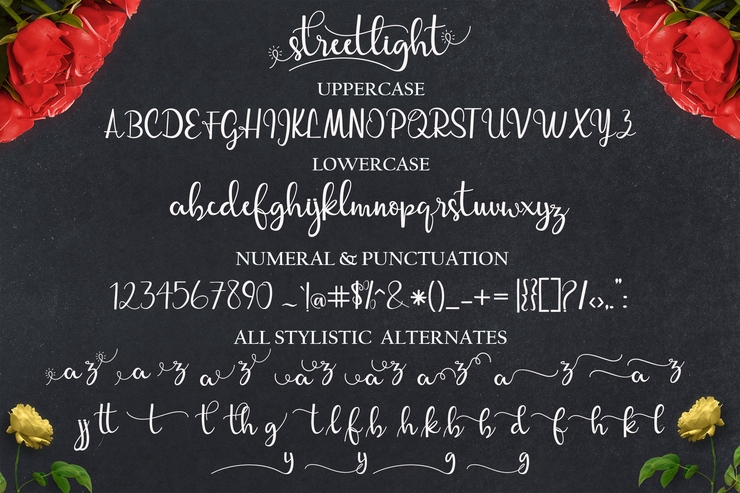 streetlight
UPPERCASE
ABCDEFGHIJKLMNOPQRSTUVWXYZ
LOWERCASE
abcdefghijklmnopqrstuvwxyz
NUMERAL & PUNCTUATION
1234567890 ~`!@#$%^&*()_-+=|{}[]?/<>,."':
ALL STYLISTIC ALTERNATES
a z a z a z a z a z a z a z a z
jj tt t t th g t l f b h k b b d f h k l
y y g g